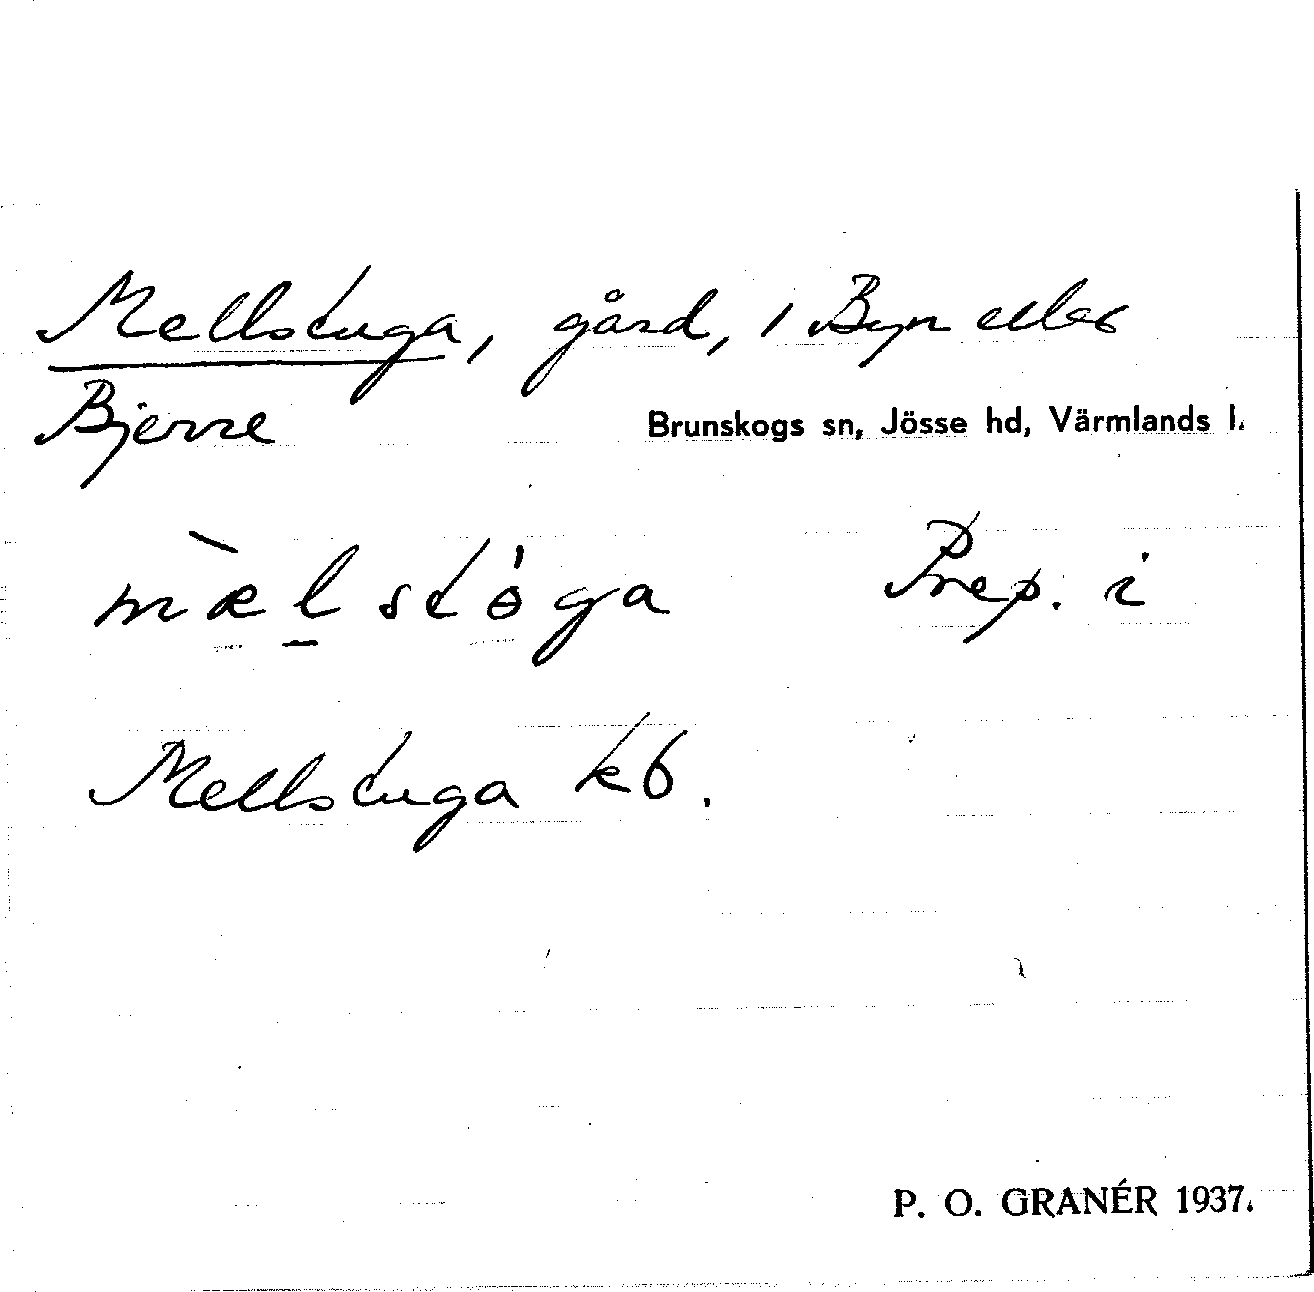 Mellstuga, gård, i Byn eller
Bjerre
Brunskogs sn, Jösse hd, Värmlands l.
mæ̀l̲stó̇ga Prep. i
Mellstuga kb.
P. O. GRANÉR 1937.